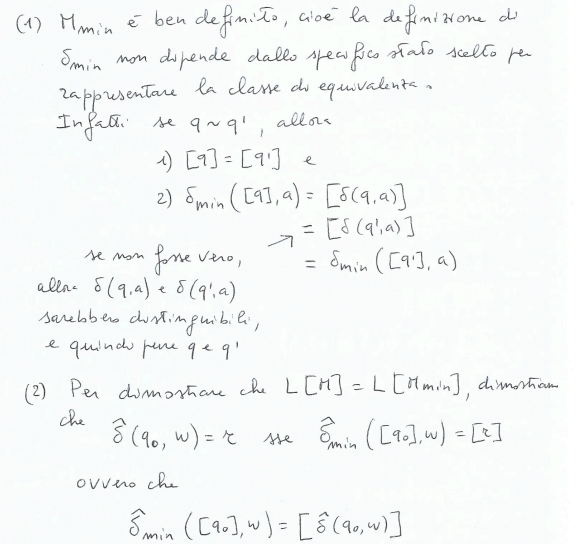 (1) Mmin è ben definito, cioè la definizione di
δmin non dipende dallo specifico stato scelto per
rappresentare la classe di equivalenza.
Infatti se q ~ q', allora
1) [q] = [q'] e
2) δmin([q], a) = [δ(q,a)]
= [δ(q',a)]
= δmin([q'], a)
se non fosse vero,
allora δ(q,a) e δ(q',a)
sarebbero distinguibili,
e quindi pure q e q'
(2) Per dimostrare che L[M] = L[Mmin], dimostriam
che δ̂(q₀, w) = r sse δ̂min([q₀], w) = [r]
ovvero che
δ̂min([q₀], w) = [δ̂(q₀, w)]